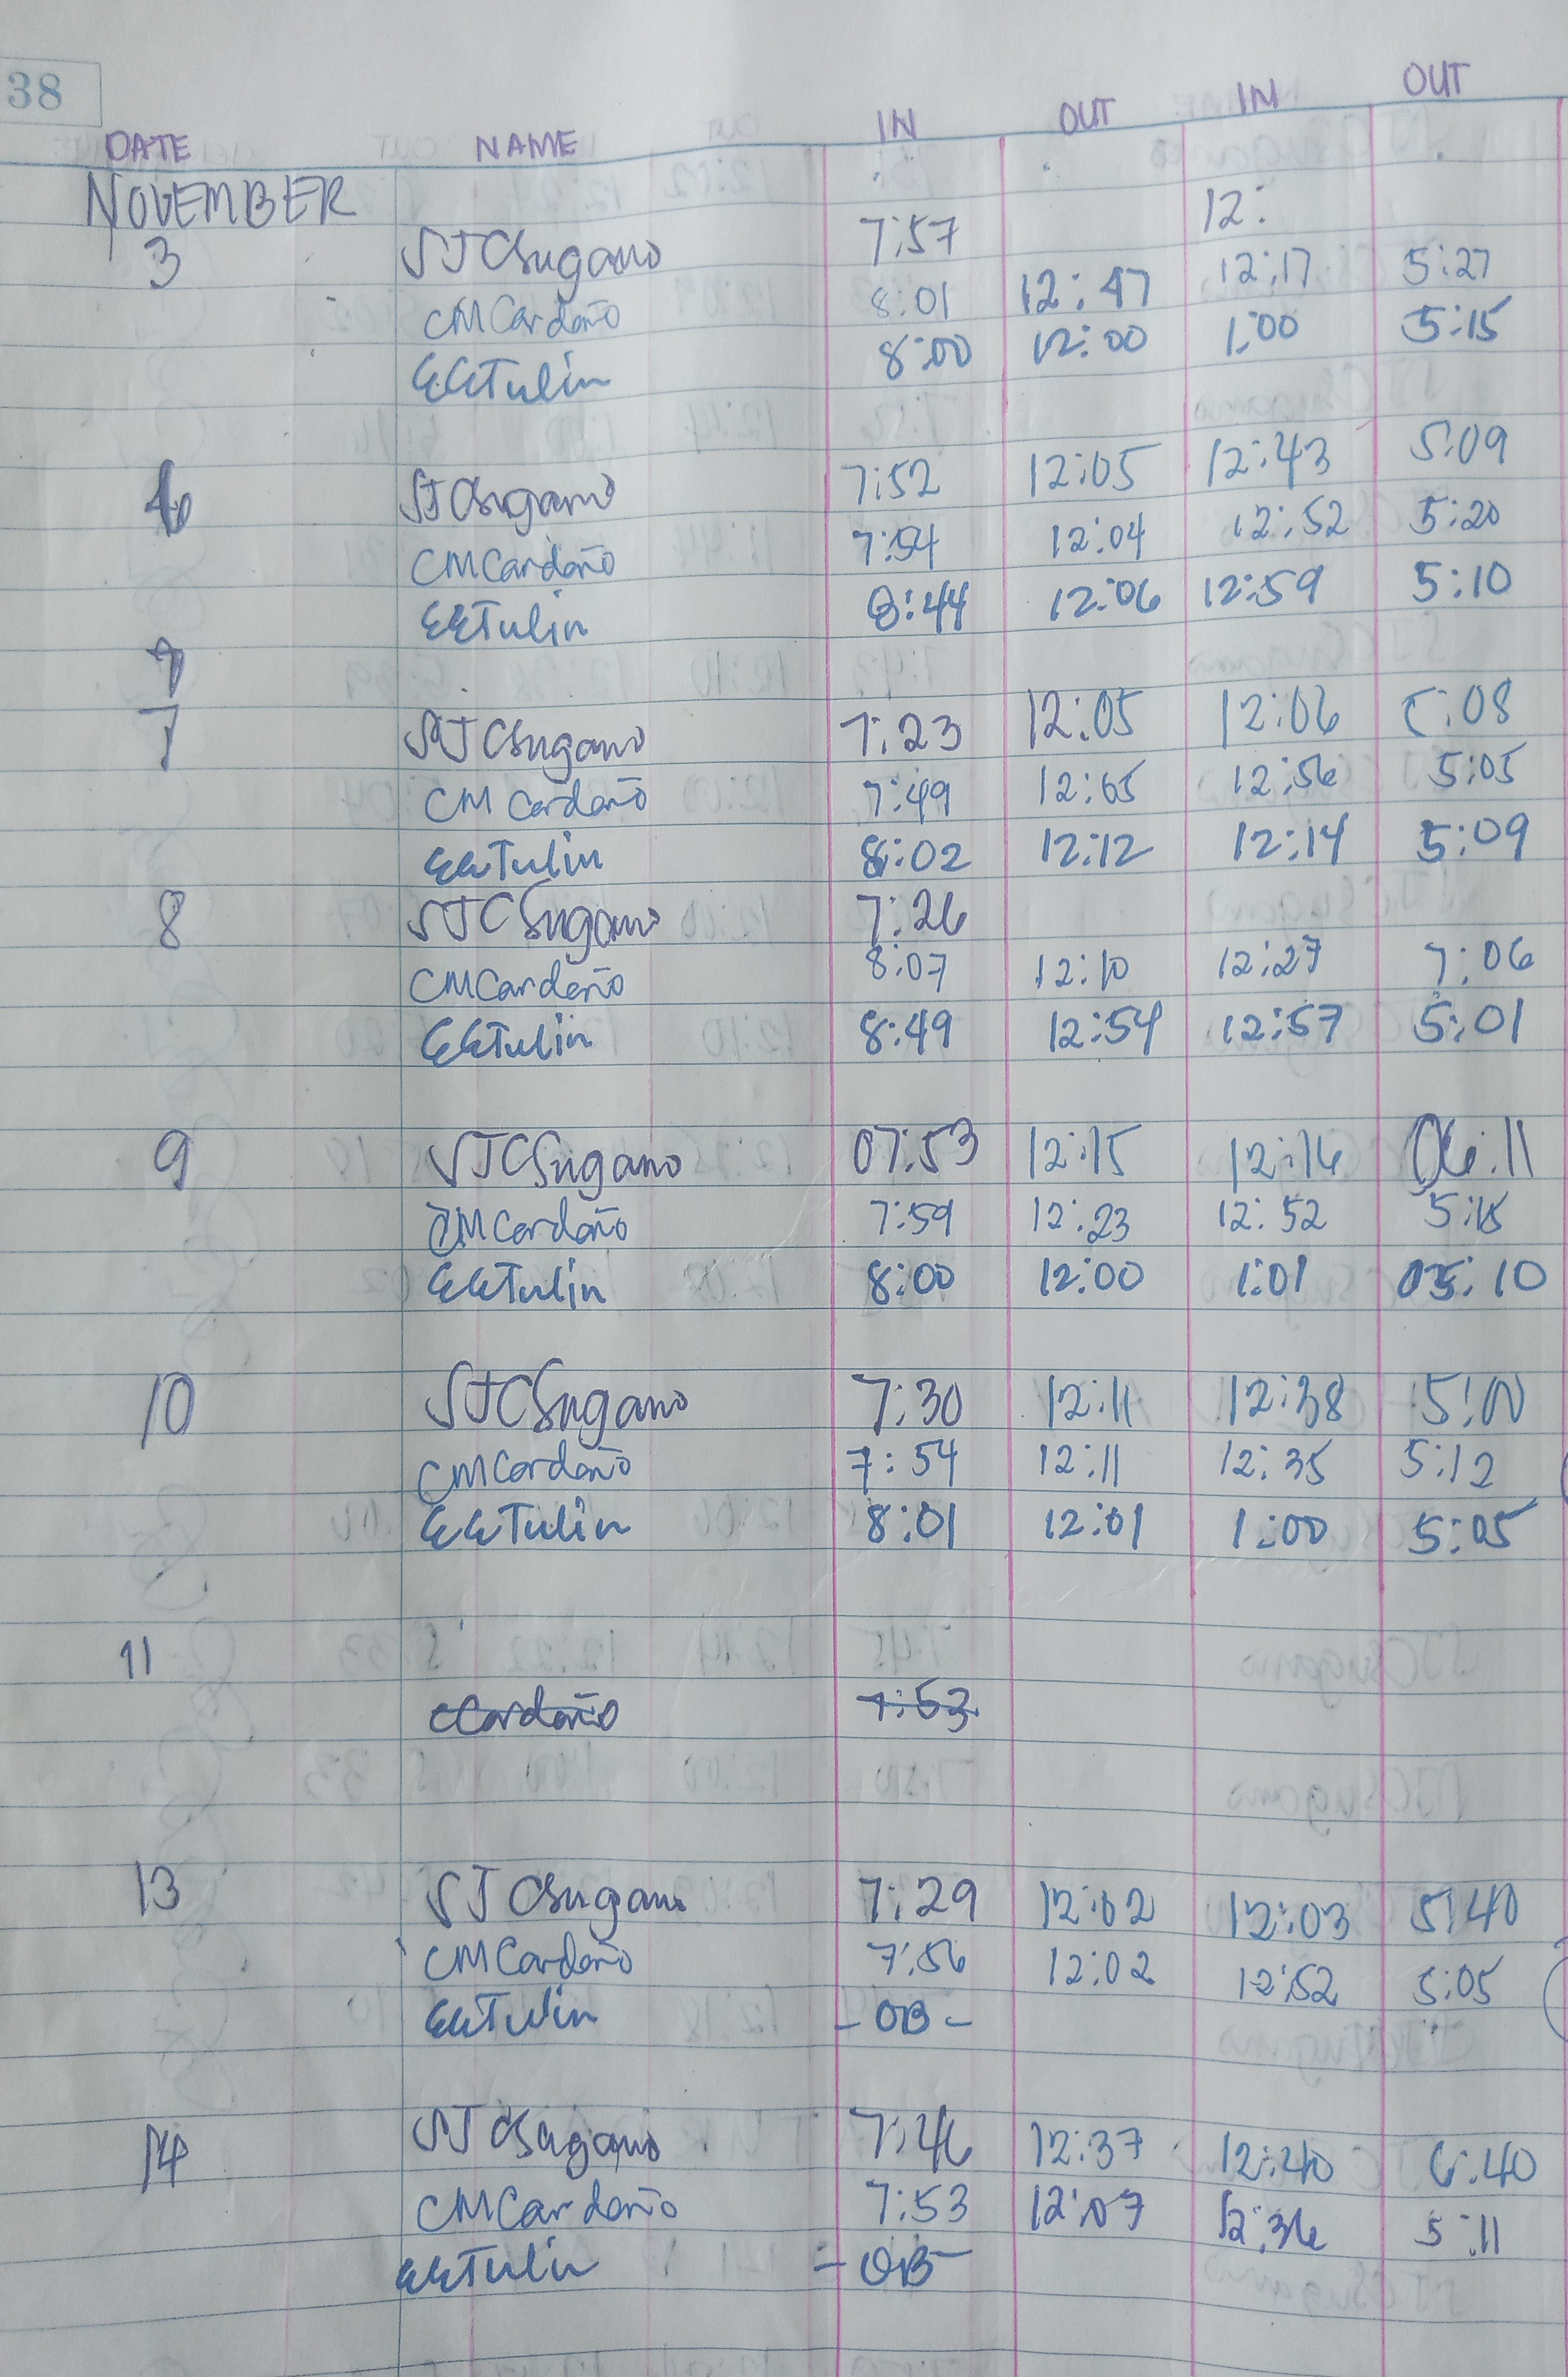 38
DATE NAME IN OUT IN OUT
NOVEMBER
3 SJCSugano 7:57 12:
CMCardaño 8:01 12:47 12:17 5:27
EETulin 8:00 12:00 1:00 5:15
6 SJCSugano 7:52 12:05 12:43 5:09
CMCardaño 7:54 12:04 12:52 5:20
EETulin 8:44 12:06 12:59 5:10
7
7 SJCSugano 7:23 12:05 12:06 5:08
CMCardaño 7:49 12:05 12:56 5:05
EETulin 8:02 12:12 12:14 5:09
8 SJCSugano 7:26
CMCardaño 8:07 12:10 12:27 7:06
EETulin 8:49 12:54 12:57 5:01
9 SJCSugano 07:53 12:15 12:16 06:11
CMCardaño 7:59 12:23 12:52 5:15
EETulin 8:00 12:00 1:01 05:10
10 SJCSugano 7:30 12:11 12:38 5:00
CMCardaño 7:54 12:11 12:35 5:12
EETulin 8:01 12:01 1:00 5:05
11
CCardaño 7:53
13 SJCSugano 7:29 12:02 12:03 5:40
CMCardaño 7:56 12:02 12:52 5:05
EETulin - OB -
14 SJCSugano 7:46 12:37 12:40 6:40
CMCardaño 7:53 12:07 12:36 5:11
EETulin - OB -